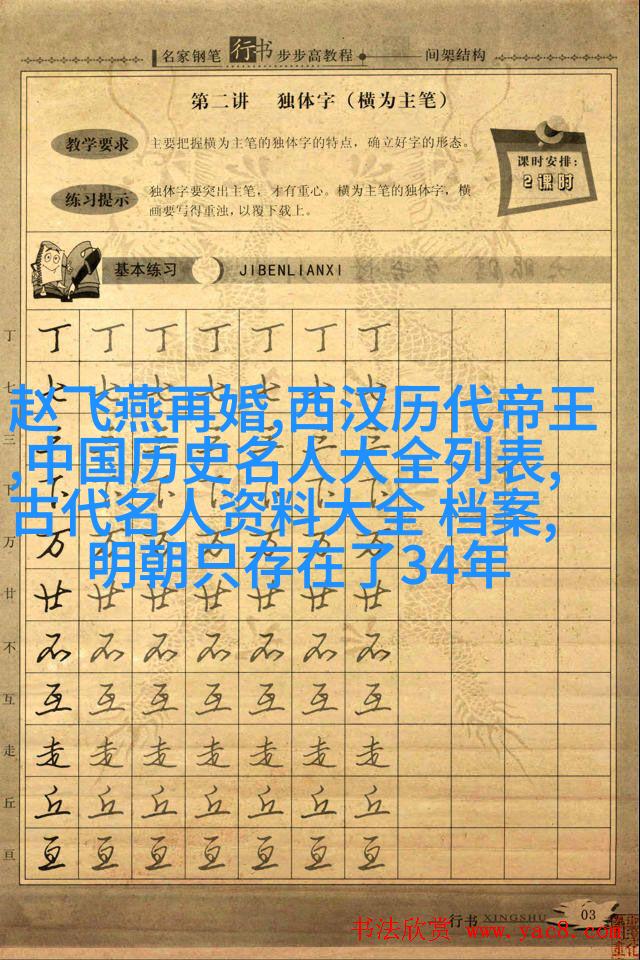 名家钢笔 行书 步步高教程 间架结构
第二讲 独体字（横为主笔）
教学要求 主要把握横为主笔的独体字的特点，确立好字的形态。
课时安排：
2课时
练习提示 独体字要突出主笔，才有重心。横为主笔的独体字，横
画要写得重浊，以覆下载上。
基本练习 JIBENLIANXI
丁 丁 丁 丁 丁 丁 丁 丁
七 七 七 七 七 七 七 七
赵飞燕再婚,西汉历代帝王
,中国历史名人大全列表,
古代名人资料大全 档案,
明朝只存在了34年
三
下
万 万 万 万 万 万 万 万
廿 廿 廿 廿 廿 廿 廿 廿
不 不 不 不 不 不 不 不
互 互 互 互 互 互 互 互
走 走 走 走 走 走 走 走
丘 丘 丘 丘 丘 丘 丘 丘
亘 亘 亘 亘 亘 亘 亘 亘
行书 XINGSHU 03
书法欣赏 www.yac8.com